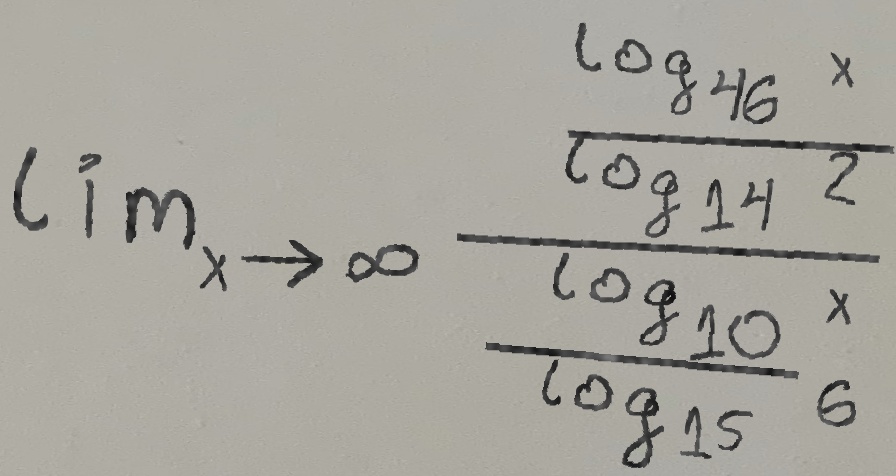 lim x→∞
log 46 x
log 14 2
log 10 x
log 15 6